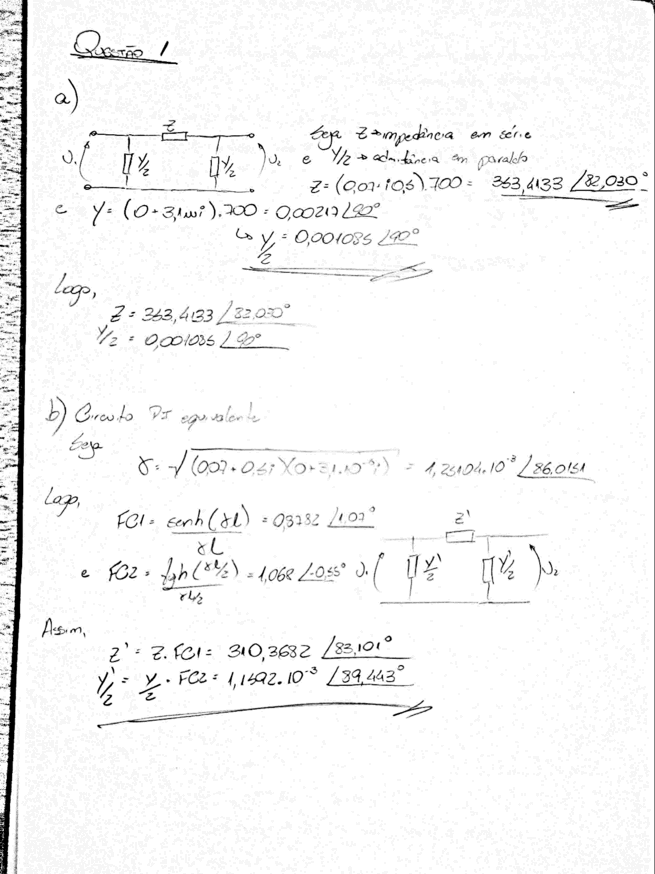 QUESTÃO 1
a)
Z
U₁ Y/2 Y/2 U₂
Seja Z → impedância em série
e Y/2 → admitância em paralelo
Z = (0,07 + i0,5).700 = 353,4133 ∠82,030°
e Y = (0 + 3,1 i).700 = 0,00217 ∠90°
↳ Y/2 = 0,001085 ∠90°
Logo,
Z = 353,4133 ∠82,030°
Y/2 = 0,001085 ∠90°
b) Circuito PI equivalente
Seja
γ = √(0,07 + 0,5i)(0 + 3,1.10⁻⁶i) = 1,25104.10⁻³ ∠86,0151
Logo,
FC1 = senh(γl)/γL = 0,8782 ∠1,07°
Z'
e FC2 = tgh(γl/2)/γL/2 = 1,068 ∠-0,55° U₁ Y'/2 Y'/2 U₂
Assim,
Z' = Z.FC1 = 310,3682 ∠83,101°
Y'/2 = Y/2 . FC2 = 1,1592.10⁻³ ∠89,443°